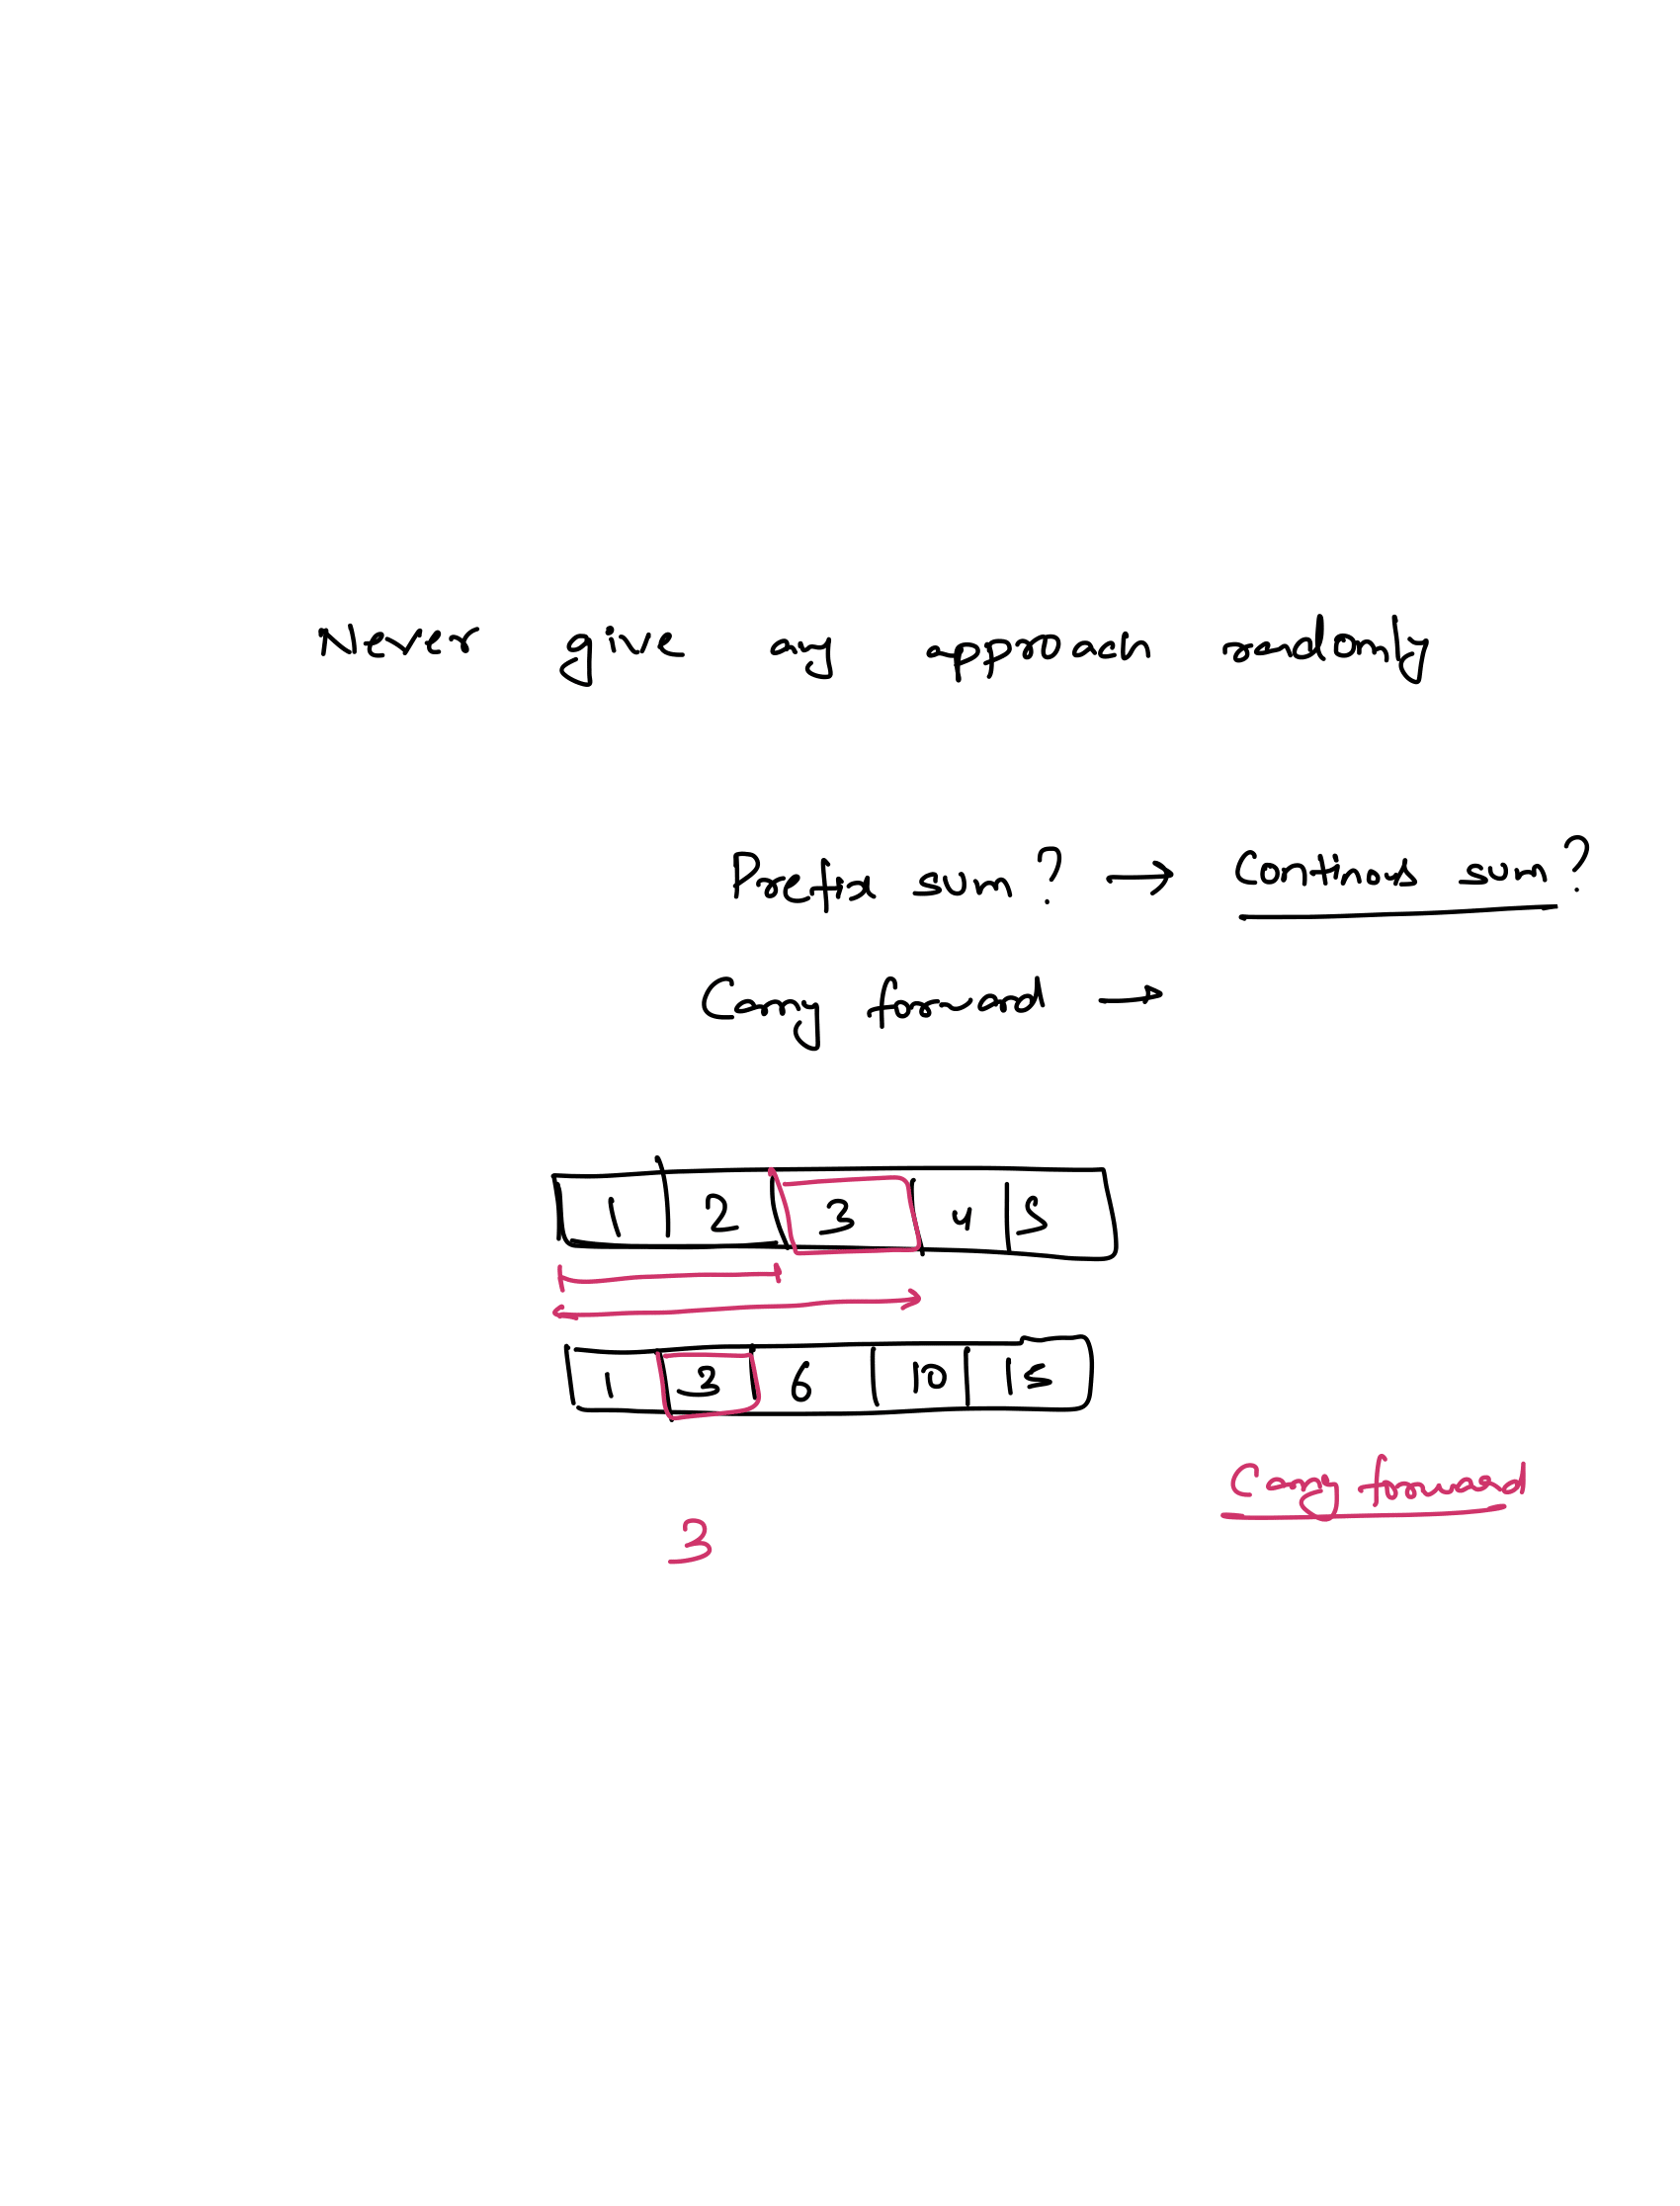 Never give any approach randomly
Prefix sum? → Continous sum?
Carry forward →
1 2 3 4 5
1 3 6 10 15
Carry forward
3